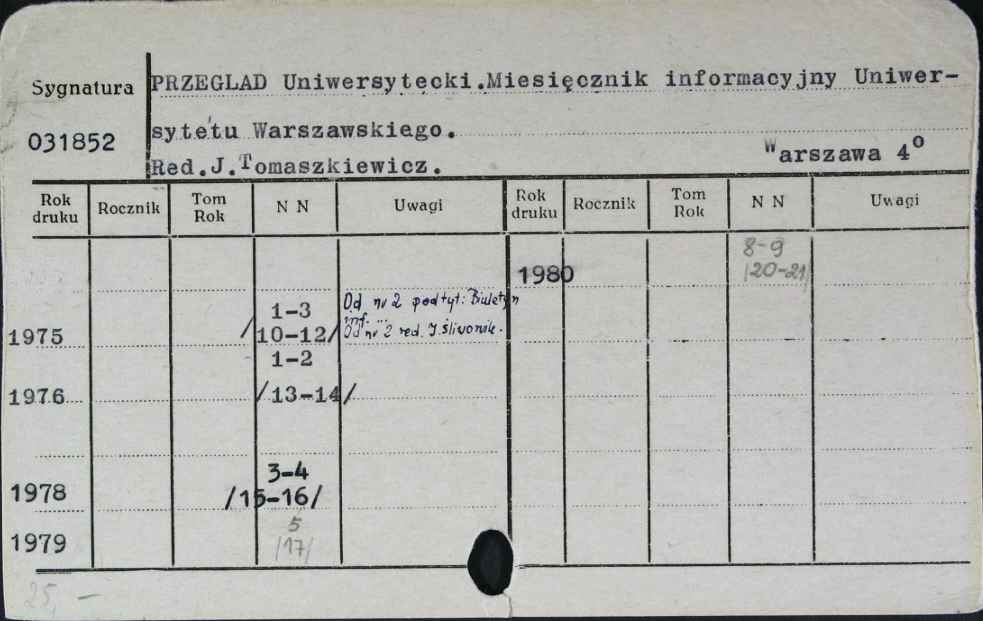 Sygnatura
PRZEGLAD Uniwersytecki.Miesięcznik informacyjny Uniwer-
031852
sytetu Warszawskiego.
Red.J.Tomaszkiewicz.
Warszawa 4°
Rok druku Rocznik Tom Rok N N Uwagi Rok druku Rocznik Tom Rok N N Uwagi
8-9
1980 /20-21/
1-3 Od nr 2 podtyt: Biuletyn
inf. ...
1975 /10-12/ Od nr 2 red. J. Śliwonik.
1-2
1976 /13-14/
3-4
1978 /15-16/
5
1979 /17/
25,-